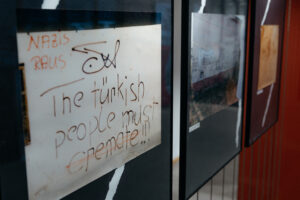 NAZIS
RAUS
The türkish
people must
cremate!!!